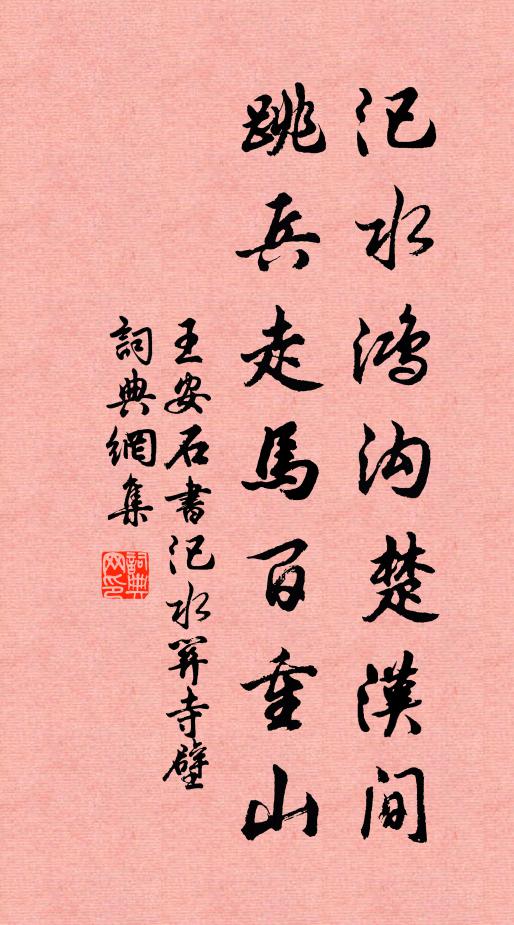 汜水鴻沟楚漢间
跳兵走馬百重山
王安石書汜水関寺壁
詞典網集
詞典网印